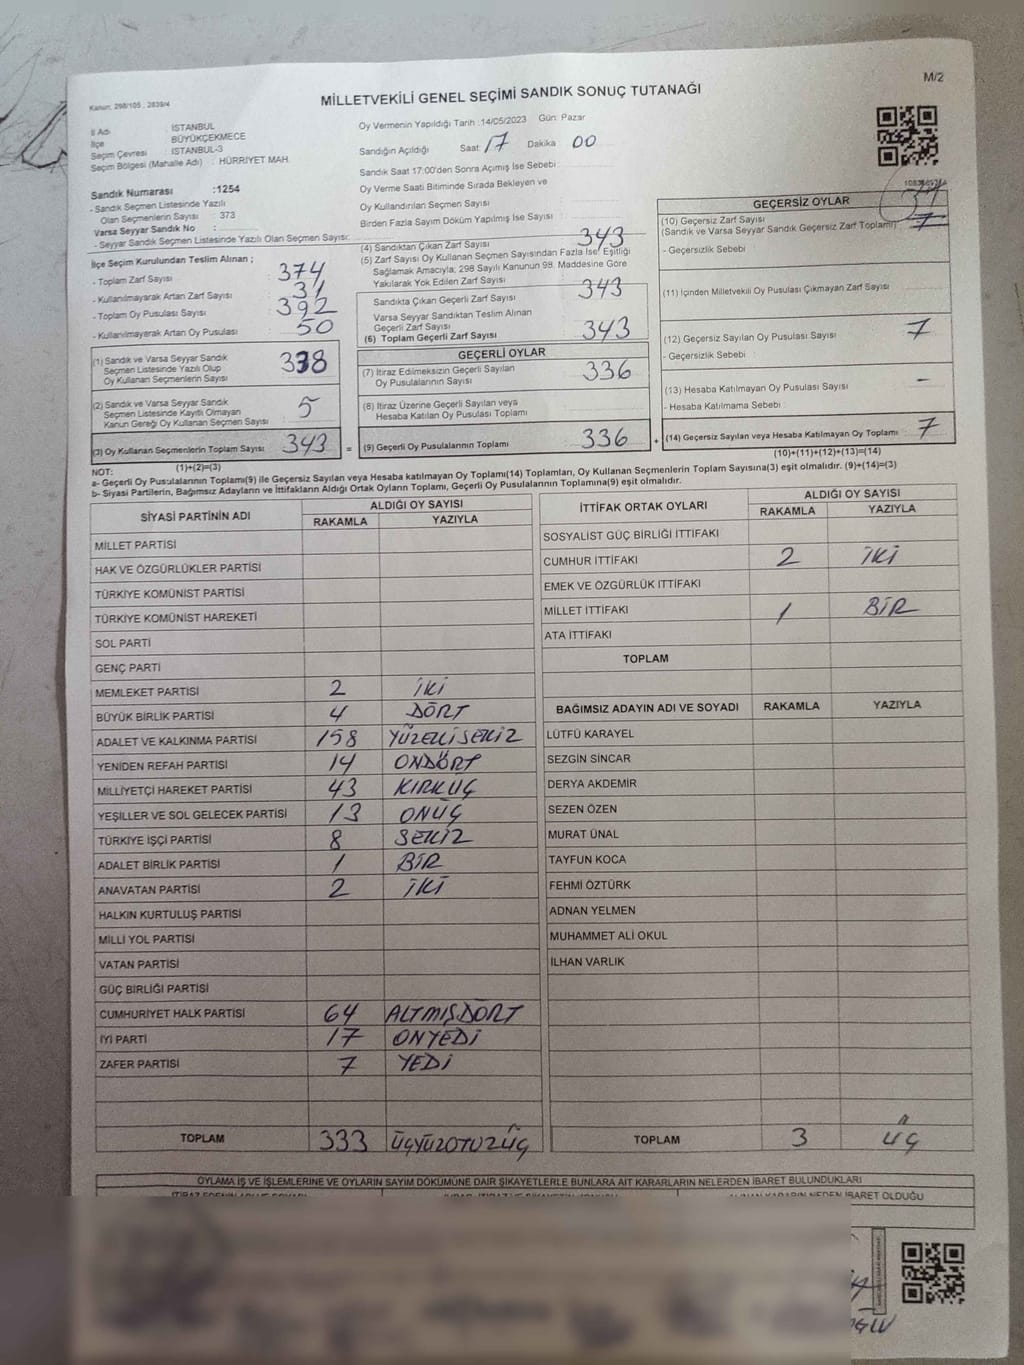 M/2
Kanun: 298/105 , 2839/4
MİLLETVEKİLİ GENEL SEÇİMİ SANDIK SONUÇ TUTANAĞI
İl Adı : İSTANBUL
İlçe : BÜYÜKÇEKMECE
Seçim Çevresi : İSTANBUL-3
Seçim Bölgesi (Mahalle Adı) : HÜRRİYET MAH.
Sandık Numarası :1254
- Sandık Seçmen Listesinde Yazılı
Olan Seçmenlerin Sayısı : 373
Varsa Seyyar Sandık No :
- Seyyar Sandık Seçmen Listesinde Yazılı Olan Seçmen Sayısı:
İlçe Seçim Kurulundan Teslim Alınan ;
- Toplam Zarf Sayısı : 374
- Kullanılmayarak Artan Zarf Sayısı : 31
- Toplam Oy Pusulası Sayısı : 392
- Kullanılmayarak Artan Oy Pusulası : 50
(1) Sandık ve Varsa Seyyar Sandık
Seçmen Listesinde Yazılı Olup
Oy Kullanan Seçmenlerin Sayısı : 338
(2) Sandık ve Varsa Seyyar Sandık
Seçmen Listesinde Kayıtlı Olmayan
Kanun Gereği Oy Kullanan Seçmen Sayısı : 5
(3) Oy Kullanan Seçmenlerin Toplam Sayısı : 343 =
(1)+(2)=(3)
Oy Vermenin Yapıldığı Tarih :14/05/2023 Gün: Pazar
Sandığın Açıldığı Saat: 17 Dakika 00
Sandık Saat 17:00'den Sonra Açımış İse Sebebi :
Oy Verme Saati Bitiminde Sırada Bekleyen ve
Oy Kullandırılan Seçmen Sayısı :
Birden Fazla Sayım Döküm Yapılmış İse Sayısı :
(4) Sandıktan Çıkan Zarf Sayısı : 343
(5) Zarf Sayısı Oy Kullanan Seçmen Sayısından Fazla İse; Eşitliği
Sağlamak Amacıyla; 298 Sayılı Kanunun 98. Maddesine Göre
Yakılarak Yok Edilen Zarf Sayısı :
Sandıkta Çıkan Geçerli Zarf Sayısı : 343
Varsa Seyyar Sandıktan Teslim Alınan
Geçerli Zarf Sayısı :
(6) Toplam Geçerli Zarf Sayısı : 343
GEÇERLİ OYLAR
(7) İtiraz Edilmeksizin Geçerli Sayılan
Oy Pusulalarının Sayısı : 336
(8) İtiraz Üzerine Geçerli Sayılan veya
Hesaba Katılan Oy Pusulası Toplamı :
(9) Geçerli Oy Pusulalarının Toplamı : 336 +
GEÇERSİZ OYLAR
(10) Geçersiz Zarf Sayısı
(Sandık ve Varsa Seyyar Sandık Geçersiz Zarf Toplamı) :
- Geçersizlik Sebebi :
(11) İçinden Milletvekili Oy Pusulası Çıkmayan Zarf Sayısı :
(12) Geçersiz Sayılan Oy Pusulası Sayısı : 7
- Geçersizlik Sebebi :
(13) Hesaba Katılmayan Oy Pusulası Sayısı : -
- Hesaba Katılmama Sebebi :
(14) Geçersiz Sayılan veya Hesaba Katılmayan Oy Toplamı : 7
(10)+(11)+(12)+(13)=(14)
NOT:
a- Geçerli Oy Pusulalarının Toplamı(9) ile Geçersiz Sayılan veya Hesaba katılmayan Oy Toplamı(14) Toplamları, Oy Kullanan Seçmenlerin Toplam Sayısına(3) eşit olmalıdır. (9)+(14)=(3)
b- Siyasi Partilerin, Bağımsız Adayların ve İttifakların Aldığı Ortak Oyların Toplamı, Geçerli Oy Pusulalarının Toplamına(9) eşit olmalıdır.
SİYASİ PARTİNİN ADI ALDIĞI OY SAYISI
RAKAMLA YAZIYLA
MİLLET PARTİSİ
HAK VE ÖZGÜRLÜKLER PARTİSİ
TÜRKİYE KOMÜNİST PARTİSİ
TÜRKİYE KOMÜNİST HAREKETİ
SOL PARTİ
GENÇ PARTİ
MEMLEKET PARTİSİ 2 İKİ
BÜYÜK BİRLİK PARTİSİ 4 DÖRT
ADALET VE KALKINMA PARTİSİ 158 YÜZELLİSEKİZ
YENİDEN REFAH PARTİSİ 14 ONDÖRT
MİLLİYETÇİ HAREKET PARTİSİ 43 KIRKÜÇ
YEŞİLLER VE SOL GELECEK PARTİSİ 13 ONÜÇ
TÜRKİYE İŞÇİ PARTİSİ 8 SEKİZ
ADALET BİRLİK PARTİSİ 1 BİR
ANAVATAN PARTİSİ 2 İKİ
HALKIN KURTULUŞ PARTİSİ
MİLLİ YOL PARTİSİ
VATAN PARTİSİ
GÜÇ BİRLİĞİ PARTİSİ
CUMHURİYET HALK PARTİSİ 64 ALTMIŞDÖRT
İYİ PARTİ 17 ONYEDİ
ZAFER PARTİSİ 7 YEDİ
TOPLAM 333 ÜÇYÜZOTUZÜÇ
İTTİFAK ORTAK OYLARI ALDIĞI OY SAYISI
RAKAMLA YAZIYLA
SOSYALİST GÜÇ BİRLİĞİ İTTİFAKI
CUMHUR İTTİFAKI 2 İKİ
EMEK VE ÖZGÜRLÜK İTTİFAKI
MİLLET İTTİFAKI 1 BİR
ATA İTTİFAKI
TOPLAM
BAĞIMSIZ ADAYIN ADI VE SOYADI RAKAMLA YAZIYLA
LÜTFÜ KARAYEL
SEZGİN SİNCAR
DERYA AKDEMİR
SEZEN ÖZEN
MURAT ÜNAL
TAYFUN KOCA
FEHMİ ÖZTÜRK
ADNAN YELMEN
MUHAMMET ALİ OKUL
İLHAN VARLIK
TOPLAM 3 ÜÇ
OYLAMA İŞ VE İŞLEMLERİNE VE OYLARIN SAYIM DÖKÜMÜNE DAİR ŞİKAYETLERLE BUNLARA AİT KARARLARIN NELERDEN İBARET BULUNDUKLARI